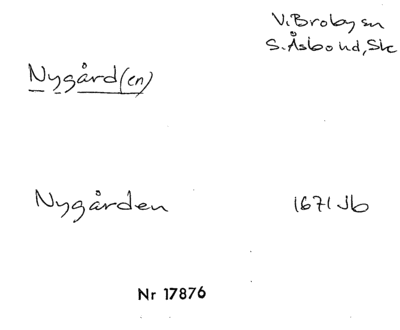 V. Broby sn
S. Åsbo hd, Sk
Nygård(en)
Nygården 1671 Jb
Nr 17876